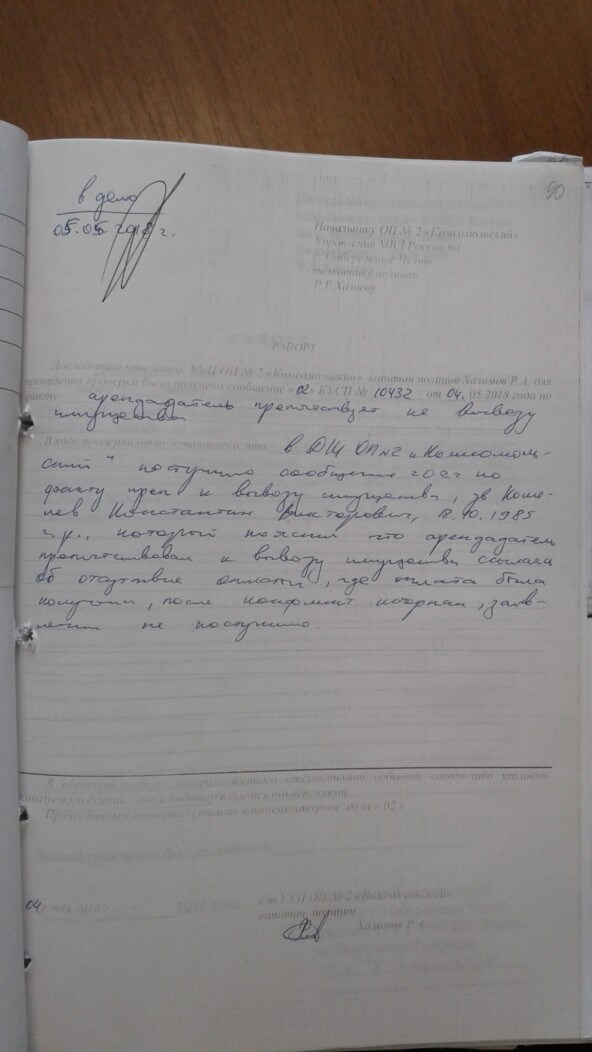 90
в дело
05.05.2018 г.
Начальнику ОП № 2 «Комсомольский»
Управления МВД России по
г. Набережные Челны
полковнику полиции
Р.Р.Хазиеву
РАПОРТ
Докладываю, что мною, УУП ОП № 2 «Комсомольский» капитан полиции Хазимов Р.А. для
проведения проверки было получено сообщение «02» КУСП № 10432 от 04.05.2018 года по
факту арендадатель препятствует не вывозу
имущества
В ходе проверки было установлено, что в ДЧ ОП №2 „Комсомоль-
ский" поступило сообщение по
факту преп к вывозу имущества, зв Коше-
лев Константин Викторович, 18.10.1985
г.р., который пояснил что арендадатель
препятствовал к вывозу имущества ссылаясь
об отсутствие оплаты, где оплата была
получена, после конфликт исчерпан, заяв-
лении не поступило.
В
отсутствуют события какого-либо уголовно-
наказуемого деяния,
Прошу данный материал списать в номенклатурное дело « 02 »
04 мая 2018 г.
Ст. УУП ОП № 2 «Комсомольский»
капитан полиции
Хазимов Р.А.